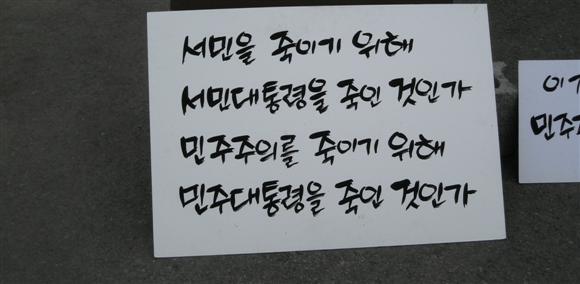 서민을 죽이기 위해
서민대통령을 죽인 것인가
민주주의를 죽이기 위해
민주대통령을 죽인 것인가
이
민주